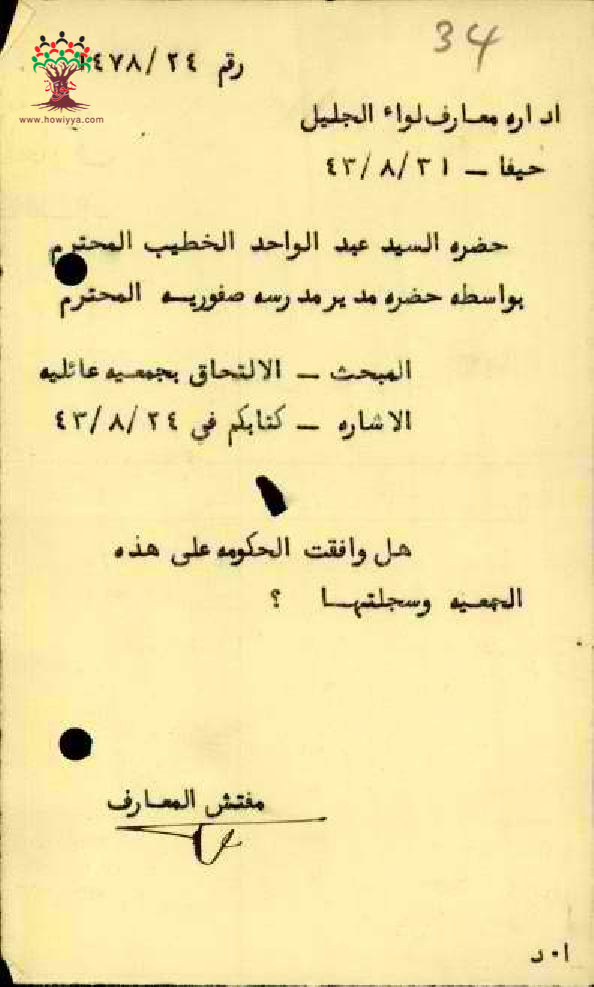 34
رقم ٢٤/١٤٧٨
www.howiyya.com
اداره معارف لواء الجليل
حيفا – ٤٣/٨/٣١
حضره السيد عبد الواحد الخطيب المحترم
بواسطه حضره مدير مدرسه صفوريه المحترم
المبحث – الالتحاق بجمعيه عائليه
الاشاره – كتابكم في ٤٣/٨/٢٤
هل وافقت الحكومه على هذه
الجمعيه وسجلتها ؟
مفتش المعارف
ا٠د